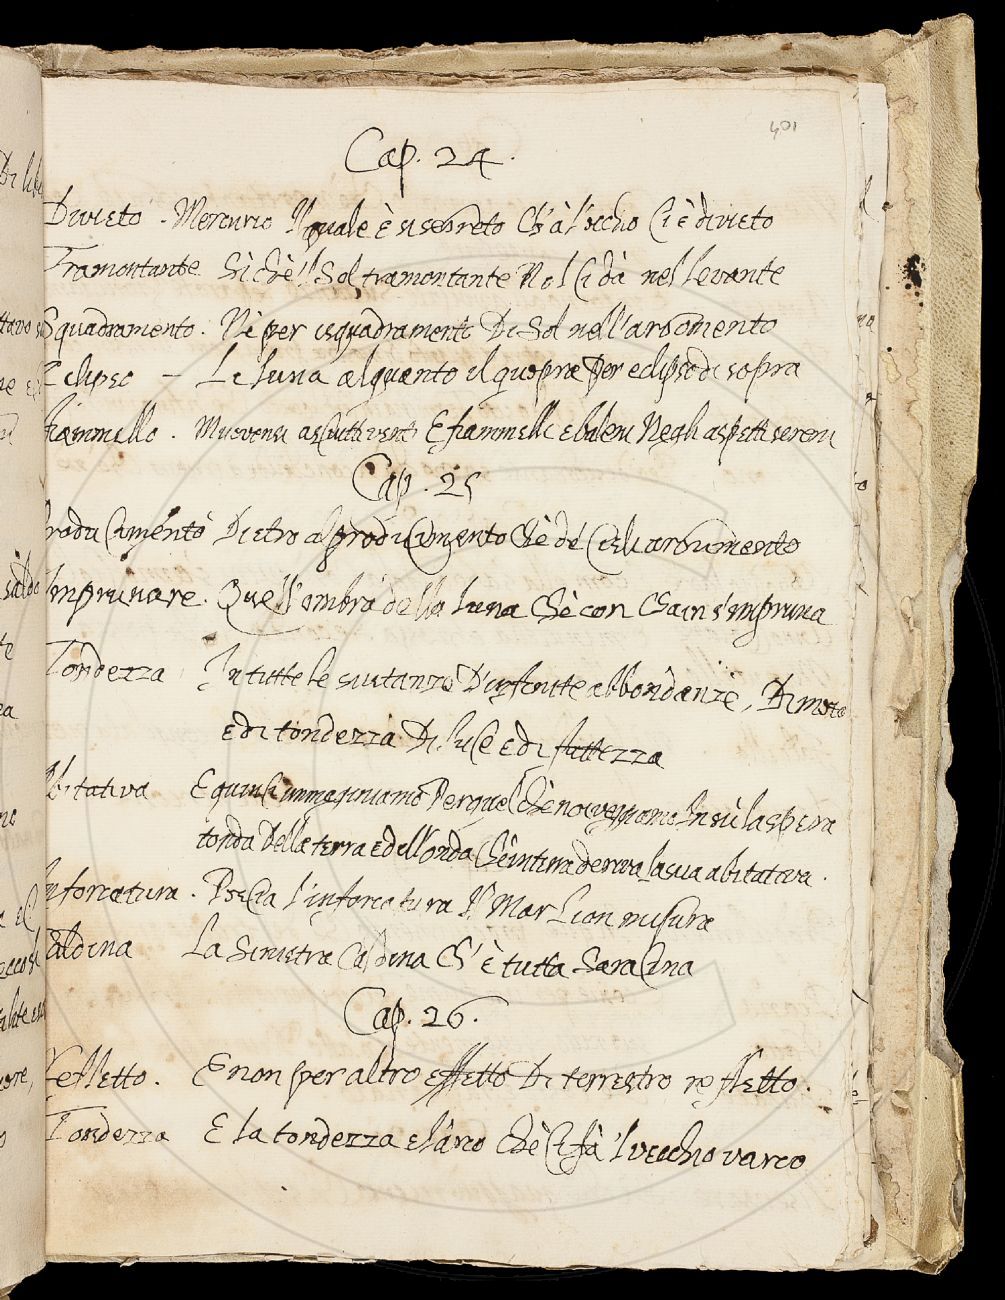 401
Cap. 24.
Divieto. Mercurio Il quale è si segreto Ch' à l'occhio Ci è divieto
Tramontante Sì chè 'l Sol tramontante Nol Ci dà nel levante
Squadramento. Nè per isquadramento Di Sol nell'argomento
Eclipso — La luna alquanto il quopra Per eclipso di sopra
Fiammelle. Muovensi asciutti venti E fiammelle e baleni Negli aspetti sereni
Cap. 25
Producimento Dietro al producimento Chè dè argumento
Impruнare. Quell'ombra della luna Chè con s'impruna
Tondezza In tutte le sustanze D'infinite abbondanze, Di mota
e di tondezza Di luce e di
abitativa E quinci immaginiamo Per quel Chè noi veggiamo In sù la spera
tonda Della terra e dell'onda Chè intorno deriva la sua abitativa.
Inforcatura. Poscia l'inforcatura Il Mar Lion misura
Caldina La Sinistra Caldina Ch' è tutta Saracina
Cap. 26.
Refletto. E non per altro effetto Di terrestro reffletto.
Tondezza E la tondezza e l'arco Chè Ci fà 'l vecchio varco